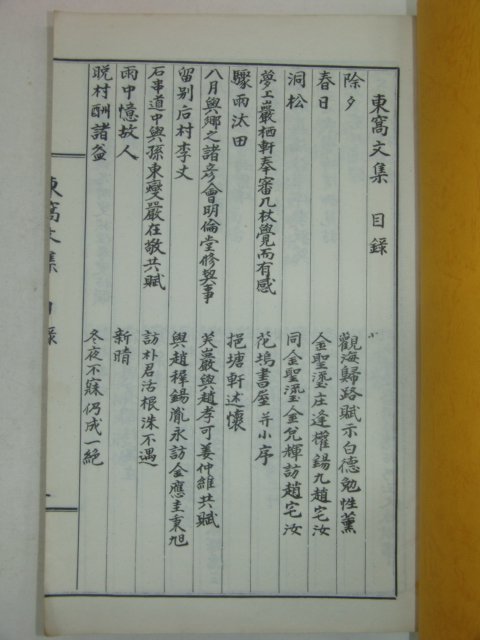 東窩文集 目錄
除夕 觀海歸路賦示白德勉性薰
春日 金聖瑬庄逢權錫九趙宅汝
洞松 同金聖瑬金允輝訪趙宅汝
夢上巖栖軒奉審几杖覺而有感
驟雨汰田 范塢書屋并小序
八月與鄕之諸彦會明倫堂修契事 挹塘軒述懷
留別后村李丈 芙巖與趙孝可姜仲維共賦
石串道中與孫東燮嚴在敬共賦 與趙 錫胤永訪金應圭秉旭
雨中憶故人 訪朴君沽根洙不遇
晚村酬諸益 新晴
冬夜不寐仍成一絶
東窩文集 目錄